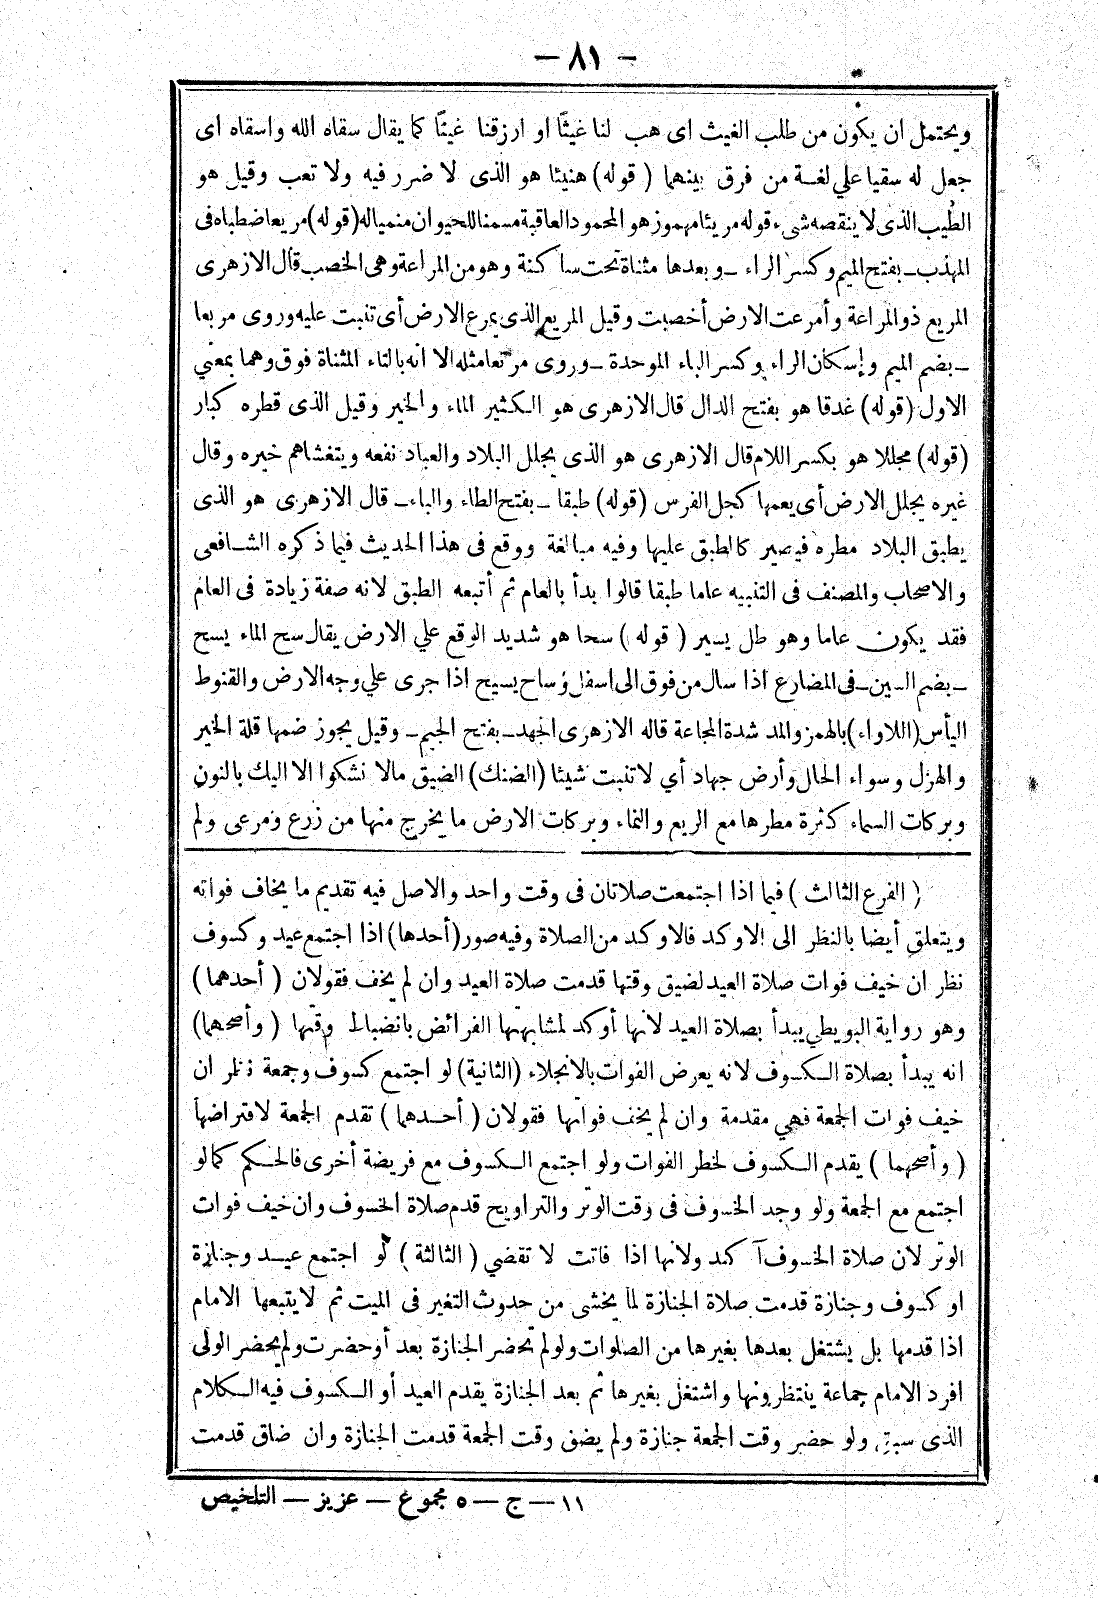 — ٨١ —
ويحتمل ان يكون من طلب الغيث اى هب لنا غيثًا او ارزقنا غيثًا كما يقال سقاه الله واسقاه اى
جعل له سقيا علي لغة من فرق بينهما ( قوله) هنيئا هو الذى لا ضرر فيه ولا تعب وقيل هو
الطيب الذى لا ينقصه شىء قوله مريئا مهموز هو المحمود العاقبة مسمنا للحيوان منمياله (قوله) مريعا ضطباه فى
المهذب ـ بفتح الميم وكسر الراء ـ وبعدها مثناة تحت ساكنة وهو من المراعة وهى الخصب قال الازهرى
المريع ذو المراعة وأمرعت الارض أخصبت وقيل المريع الذى يمرع الارض أى تنبت عليه وروى مربعا
ـ بضم الميم وإسكان الراء وكسر الباء الموحدة ـ وروى مرتعا مثله الا انه بالتاء المثناة فوق وهما بمعني
الاول (قوله) غدقا هو بفتح الدال قال الازهرى هو الكثير الماء والخير وقيل الذى قطره كبار
(قوله) مجللا هو بكسر اللام قال الازهرى هو الذى يجلل البلاد والعباد نفعه ويتغشاهم خيره وقال
غيره يجلل الارض أى يعمها كجل الفرس (قوله) طبقا ـ بفتح الطاء والباء ـ قال الازهرى هو الذى
يطبق البلاد مطره فيصير كالطبق عليها وفيه مبالغة ووقع فى هذا الحديث فيما ذكره الشافعى
والاصحاب والمصنف فى التنبيه عاما طبقا قالوا بدأ بالعام ثم أتبعه الطبق لانه صفة زيادة فى العام
فقد يكون عاما وهو طل يسير ( قوله ) سحا هو شديد الوقع علي الارض يقال سح الماء يسح
ـ بضم السين ـ فى المضارع اذا سال من فوق الى اسفل وساح يسيح اذا جرى علي وجه الارض والقنوط
اليأس (اللاواء) بالهمز والمد شدة المجاعة قاله الازهرى الجهد ـ بفتح الجيم ـ وقيل يجوز ضمها قلة الخير
والهزل وسواء الحال وأرض جهاد أي لا تنبت شيئا (الضنك) الضيق مالا نشكوا الا اليك بالنون
وبركات السماء كثرة مطرها مع الريع والنماء وبركات الارض ما يخرج منها من زرع ومرعى ولم
( الفرع الثالث ) فيما اذا اجتمعت صلاتان فى وقت واحد والاصل فيه تقديم ما يخاف فواته
ويتعلق أيضا بالنظر الى الاوكد فالاوكد من الصلاة وفيه صور (أحدها) اذا اجتمع عيد وكسوف
نظر ان خيف فوات صلاة العيد لضيق وقتها قدمت صلاة العيد وان لم يخف فقولان ( أحدهما )
وهو رواية البويطي يبدأ بصلاة العيد لانها أوكد لمشابهتها الفرائض بانضباط وقتها ( وأصحهما)
انه يبدأ بصلاة الكسوف لانه يعرض الفوات بالانجلاء (الثانية) لو اجتمع كسوف وجمعة نظر ان
خيف فوات الجمعة فهي مقدمة وان لم يخف فواتها فقولان ( أحدهما ) تقدم الجمعة لافتراضها
( وأصحهما ) يقدم الكسوف لخطر الفوات ولو اجتمع الكسوف مع فريضة أخرى فالحكم كما لو
اجتمع مع الجمعة ولو وجد الخسوف فى وقت الوتر والتراويح قدم صلاة الخسوف وان خيف فوات
الوتر لان صلاة الخسوف آكد ولانها اذا فاتت لا تقضي ( الثالثة ) لو اجتمع عيد وجنازة
او كسوف وجنازة قدمت صلاة الجنازة لما يخشى من حدوث التغير فى الميت ثم لا يتبعها الامام
اذا قدمها بل يشتغل بعدها بغيرها من الصلوات ولو لم تحضر الجنازة بعد أو حضرت ولم يحضر الولى
افرد الامام جماعة ينتظرونها واشتغل بغيرها ثم بعد الجنازة يقدم العيد أو الكسوف فيه الكلام
الذى سبق ولو حضر وقت الجمعة جنازة ولم يضق وقت الجمعة قدمت الجنازة وان ضاق قدمت
١١ — ج — ٥ مجموع — عزيز — التلخيص